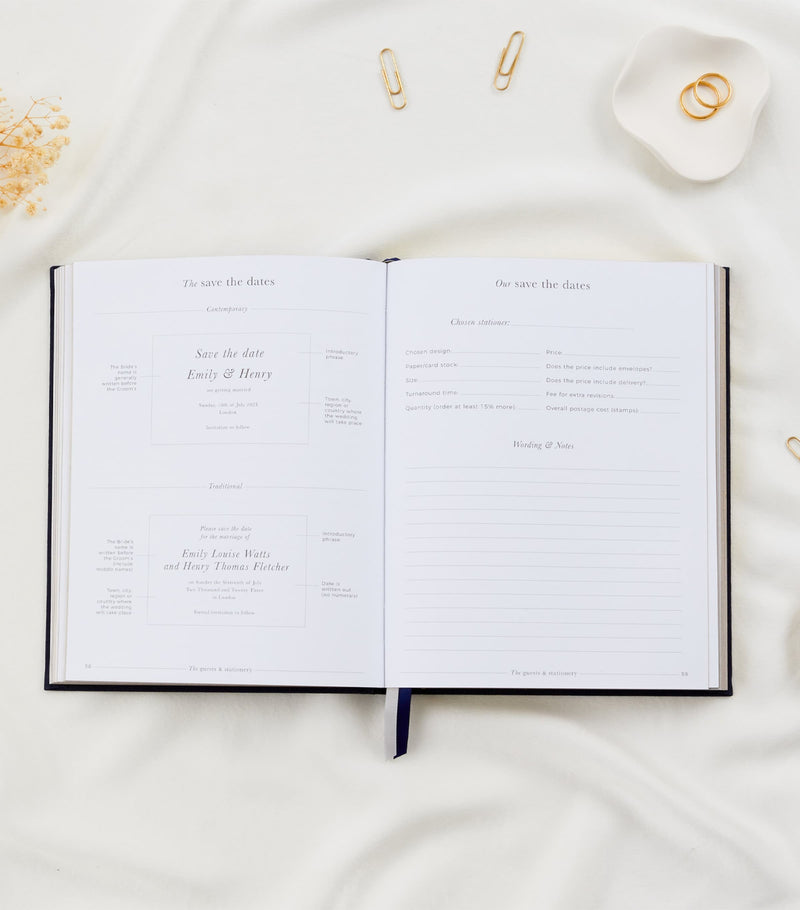 The save the dates
Contemporary
The Bride's
name is
generally
written before
the Groom's
Save the date
Emily & Henry
are getting married
Sunday, 16th of July 2023
London
Invitation to follow
Introductory
phrase
Town, city,
region or
country where
the wedding
will take place
Traditional
The Bride's
name is
written before
the Groom's
(include
middle names)
Town, city,
region or
country where
the wedding
will take place
Please save the date
for the marriage of
Emily Louise Watts
and Henry Thomas Fletcher
on Sunday the Sixteenth of July
Two Thousand and Twenty Three
in London
Formal invitation to follow
Introductory
phrase
Date is
written out
(no numerals)
The guests & stationery
Our save the dates
Chosen stationer:
Chosen design: Price:
Paper/card stock: Does the price include envelopes?
Size: Does the price include delivery?
Turnaround time: Fee for extra revisions:
Quantity (order at least 15% more) Overall postage cost (stamps)
Wording & Notes
The guests & stationery